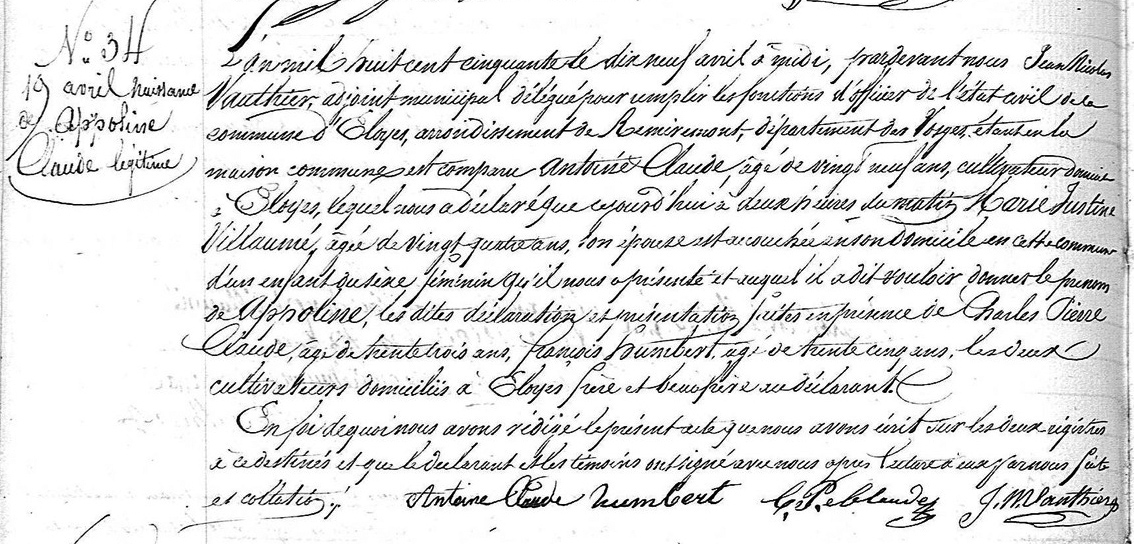 N.° 34
19 avril naissance
de Appoline
Claude légitime
L'an mil huit cent cinquante le dix neuf avril à midi, pardevant nous Jean Nicolas
Vauthier, adjoint municipal délégué pour remplir les fonctions d'officier de l'état civil de la
commune d'Éloyes, arrondissement de Remiremont, département des Vosges, étant en la
maison commune est comparu Antoine Claude, âgé de vingt neuf ans, cultivateur domicilié
à Éloyes, lequel nous a déclaré que cejourd'hui à deux heures du matin Marie Justine
Villaumé, âgée de vingt quatre ans, son épouse est accouchée en son domicile en cette commune
d'un enfant du sexe féminin qu'il nous a présenté et auquel il a dit vouloir donner le prénom
de Appoline, les dites déclaration et présentation faites en présence de Charles Pierre
Claude, âgé de trente trois ans, françois humbert, âgé de trente cinq ans, les deux
cultivateurs domiciliés à Éloyes frère et beaufrère au déclarant.
En foi de quoi nous avons rédigé le présent acte que nous avons écrit sur les deux régistres
à ce destinés et que le déclarant et les témoins ont signé avec nous après lecture à eux par nous faite
et collation.
Antoine Claude humbert C. Pe Claude J. N. Vauthier